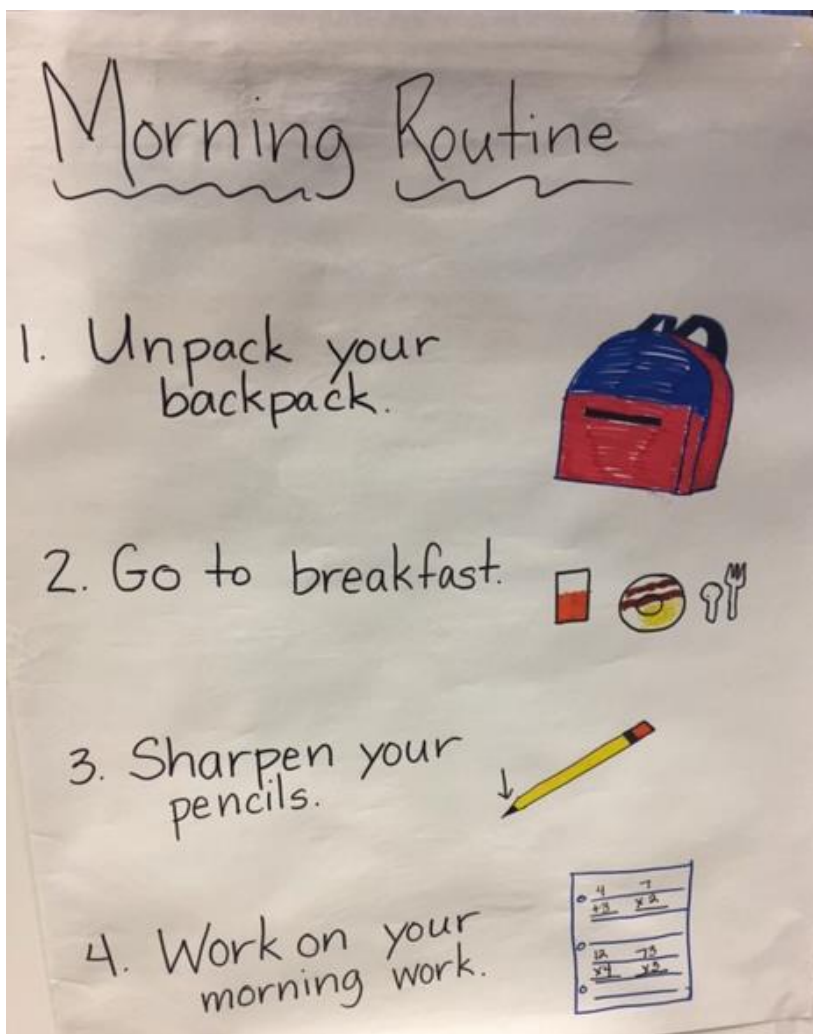 Morning Routine
1. Unpack your
backpack.
2. Go to breakfast.
3. Sharpen your
pencils.
4. Work on your
morning work.
4 7
+3 x2
12 73
x4 x3